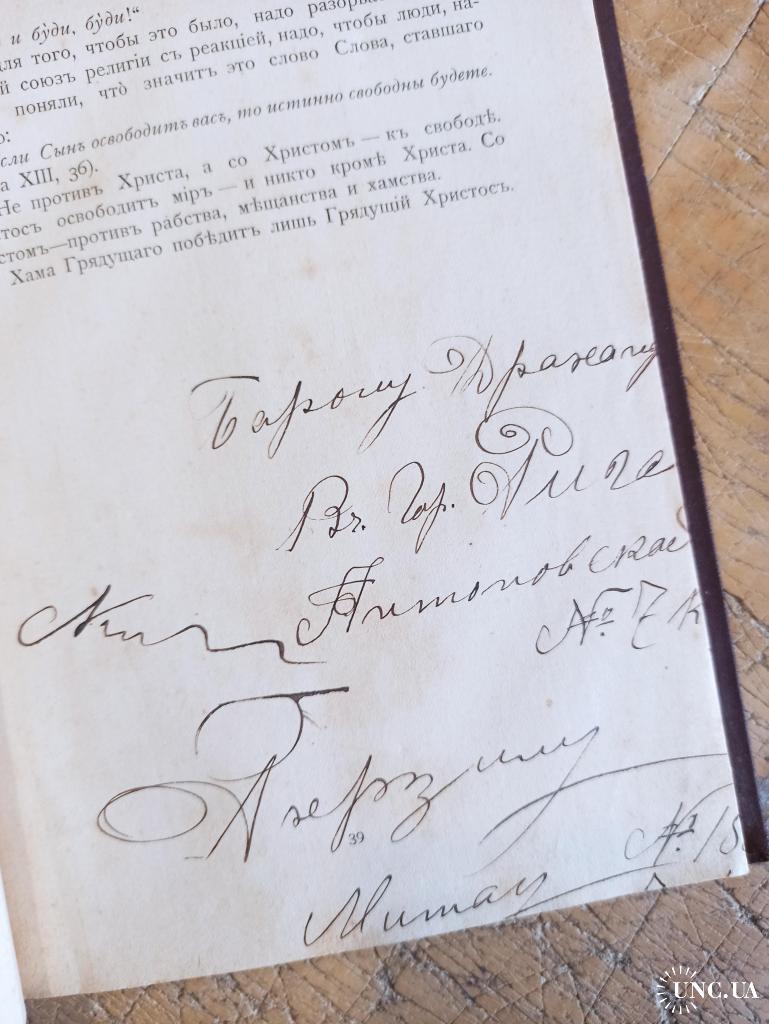 и буди, буди!“
для того, чтобы это было, надо
й союзъ религіи съ реакціей, надо, чтобы люди, на-
поняли, что̀ значитъ это слово Слова, ставшаго
о:
если Сынъ освободитъ васъ, то истинно свободны будете.
а XIII, 36).
Не противъ Христа, а со Христомъ — къ свободѣ.
тосъ освободитъ міръ — и никто кромѣ Христа. Со
стомъ—противъ рабства, мѣщанства и хамства.
Хама Грядущаго побѣдитъ лишь Грядущій Христосъ.
Барону
Въ. Гор. Рига
Антоновская
№ 7 к
39
Митау
UNC.UA